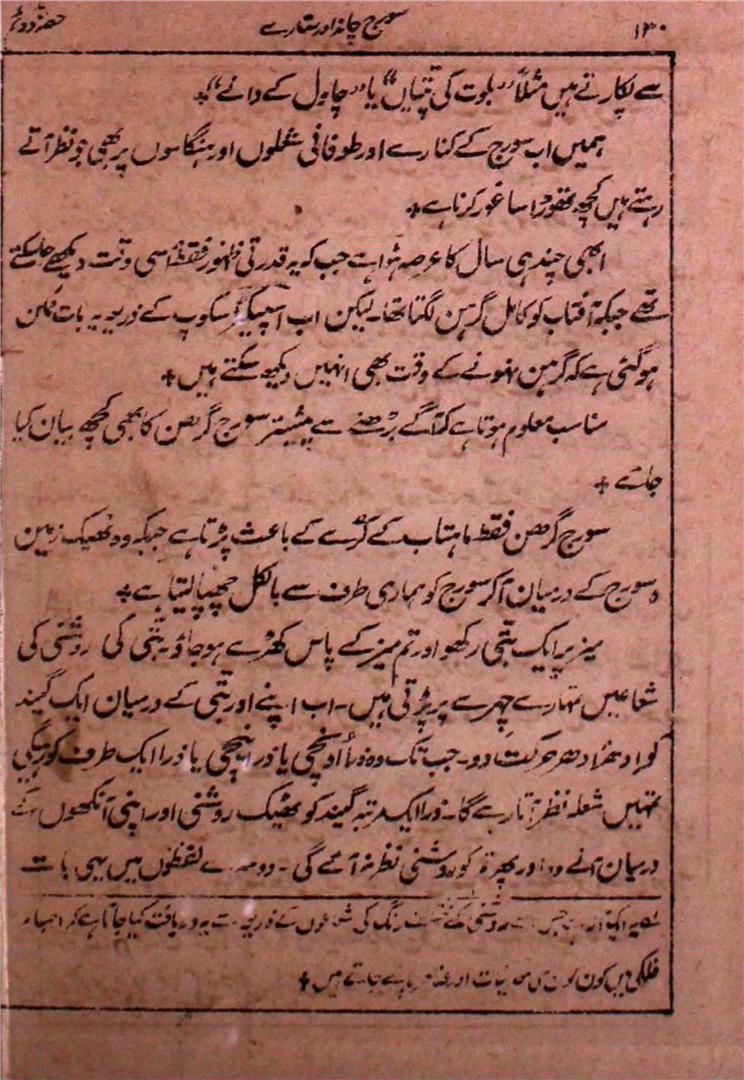 ۱۳۰ سورج چاند اور ستارے حصہ دوئم
سے پکارتے ہیں مثلاً "بلوت کی پتیاں" یا "چاول کے دانے"+
ہمیں اب سورج کے کنارے اور طوفانی شعلوں اور ہنگاموں پر بھی جو نظر آتے
رہتے ہیں کچھ تھوڑا سا غور کرنا ہے+
ابھی چند ہی سال کا عرصہ ہوا ہے جب کہ یہ قدرتی ظہور فقط اسی وقت دیکھے جا سکتے
تھے جبکہ آفتاب کو کامل گرہن لگتا تھا۔ لیکن اب اسپیکٹرسکوپ کے ذریعہ یہ بات ممکن
ہو گئی ہے کہ گرہن نہونے کے وقت بھی انہیں دیکھ سکتے ہیں+
مناسب معلوم ہوتا ہے کہ آگے بڑھنے سے پیشتر سورج گرھن کا بھی کچھ بیان کیا
جائے+
سورج گرھن فقط ماہتاب کے کُرے کے باعث پڑتا ہے جبکہ وہ ٹھیک زمین
و سورج کے درمیان آ کر سورج کو ہماری طرف سے بالکل چھپا لیتا ہے+
میز پر ایک بتّی رکھو اور تم میز کے پاس کھڑے ہو جاؤ۔ بتّی کی روشنی کی
شعاعیں تمہارے چہرے پر پڑتی ہیں۔ اب اپنے اور بتّی کے درمیان ایک گیند
کو ادھر ادھر حرکت دو۔ جب تک وہ ذرا اونچی یا ذرا نیچی یا ذرا ایک طرف کو رہیگی
تمہیں شعلہ نظر آتا رہے گا۔ ذرا ایک مرتبہ گیند کو ٹھیک روشنی اور اپنی آنکھوں کے
درمیان آنے دو اور پھر تم کو روشنی نظر نہ آئے گی۔ دوسرے لفظوں میں یہی بات
یہ ایک آلہ ہے جس سے روشنی کے مختلف رنگ کی شعاعوں کے ذریعہ سے یہ دریافت کیا جاتا ہے کہ اجسام
فلکی میں کون کون سی معدنیات اور عناصر پائے جاتے ہیں+